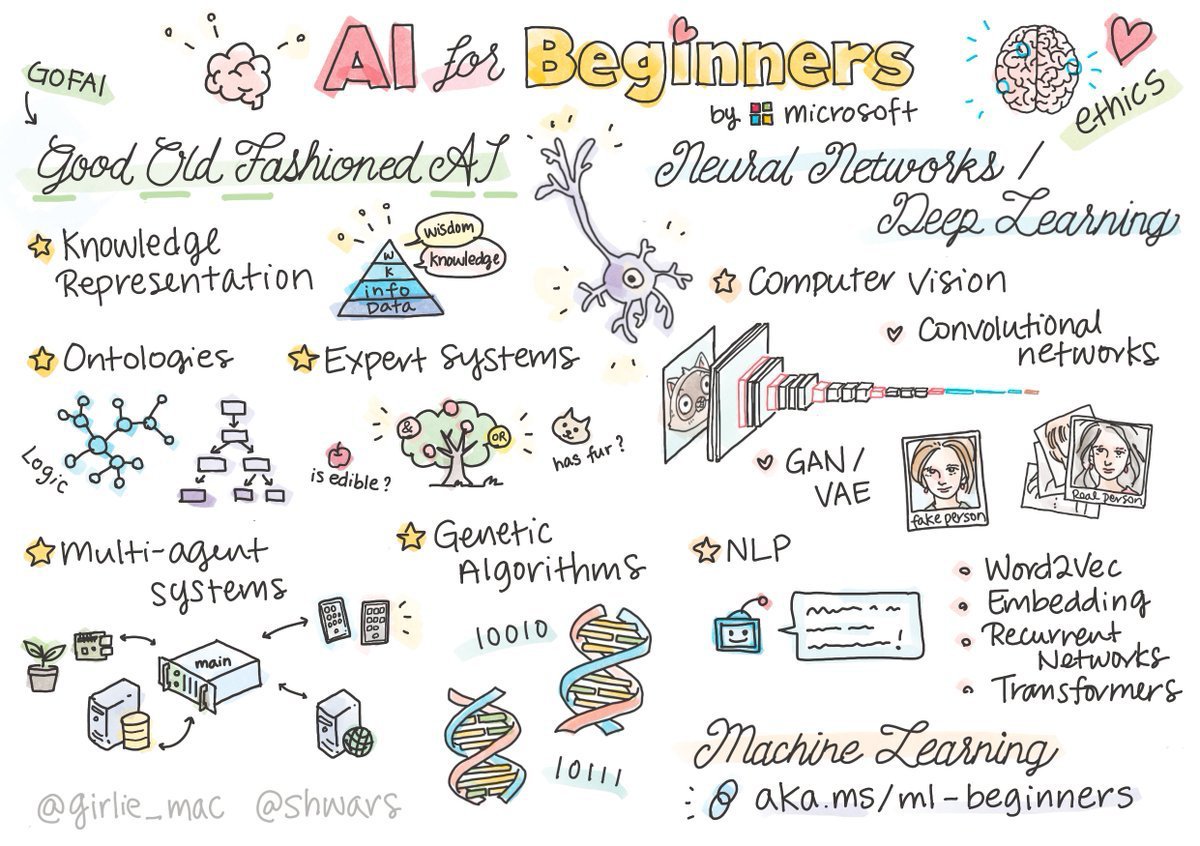 AI for Beginners
by microsoft
GOFAI
ethics
Good Old Fashioned AI
Knowledge
Representation
wisdom
knowledge
W
K
info
Data
Ontologies
Logic
Expert Systems
&
OR
is edible?
has fur?
Multi-agent
systems
main
Genetic
Algorithms
10010
10111
Neural Networks /
Deep Learning
Computer Vision
Convolutional
networks
GAN /
VAE
fake person
Real person
NLP
Word2Vec
Embedding
Recurrent
Networks
Transformers
Machine Learning
aka.ms/ml-beginners
@girlie_mac @shwars